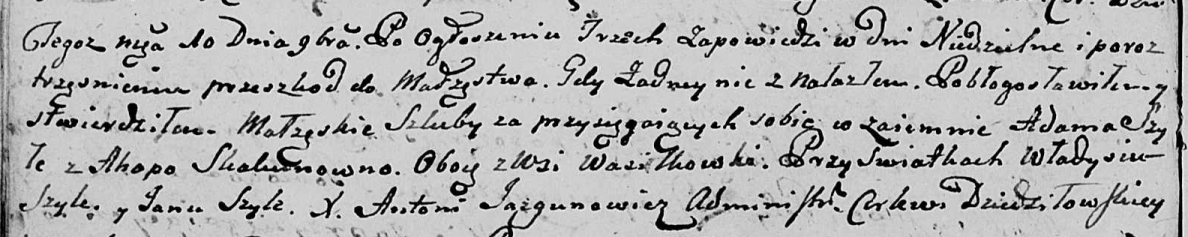 Tegoz mca 10 Dnia 9bra. Po Ogłoszeniu Trzech Zapowiedzi w Dni Niedzielne i poroz
trząsnieniu przeszkod do Małżęstwa. Gdy Zadney nie znalazłem. Pobłogosławiłem y
stwierdziłem Małżęskie Szluby za przysięgaiących sobie w zaiemnie Adama Szy
łe z Ahapo Skakunowno. Oboie z Wsi Wasiłkowki. Przy Swiatkach Władysiu
Szyłe y Janu Szyłe. X. Antoni Jazgunowicz Administr. Cerkwi Dziedziłowskiey